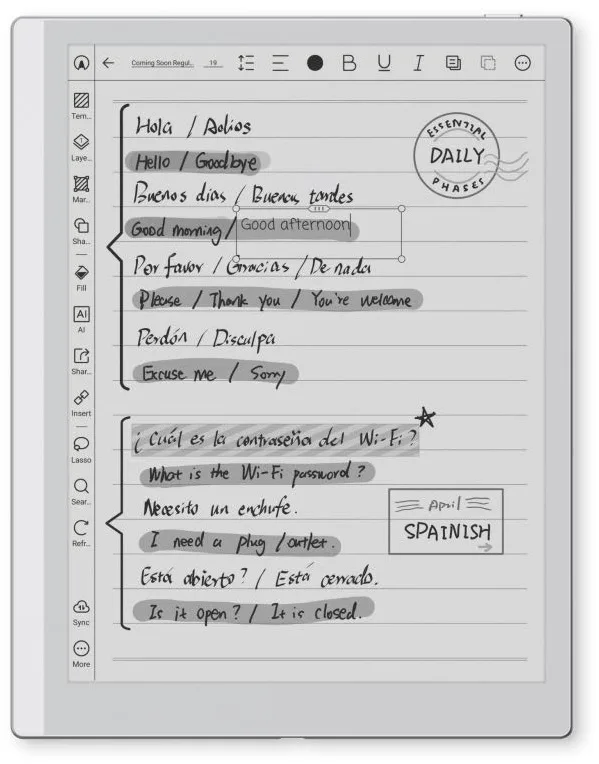 Coming Soon Regul... 19 B U I
Tem...
Laye...
Mar...
Sha...
Fill
AI
AI
Shar...
Insert
Lasso
Sear...
Refr...
Sync
More
Hola / Adios
Hello / Goodbye
Buenos días / Buenas tardes
Good morning / Good afternoon
Por favor / Gracias / De nada
Please / Thank you / You're welcome
Perdón / Disculpa
Excuse me / Sorry
ESSENTIAL
DAILY
PHASES
¿Cuál es la contraseña del Wi-Fi?
What is the Wi-Fi password?
Necesito un enchufe.
I need a plug /outlet.
Está abierto? / Está cerrado.
Is it open? / It is closed.
April
SPAINISH